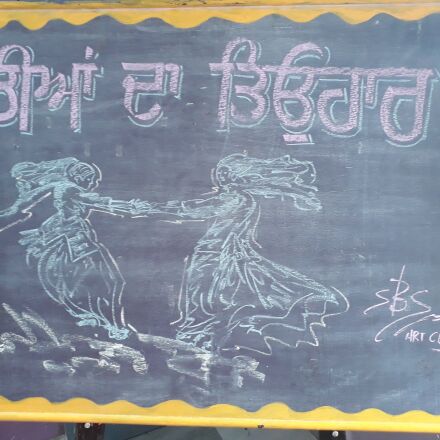 ਤੀਆਂ ਦਾ ਤਿਉਹਾਰ
SBS
ART